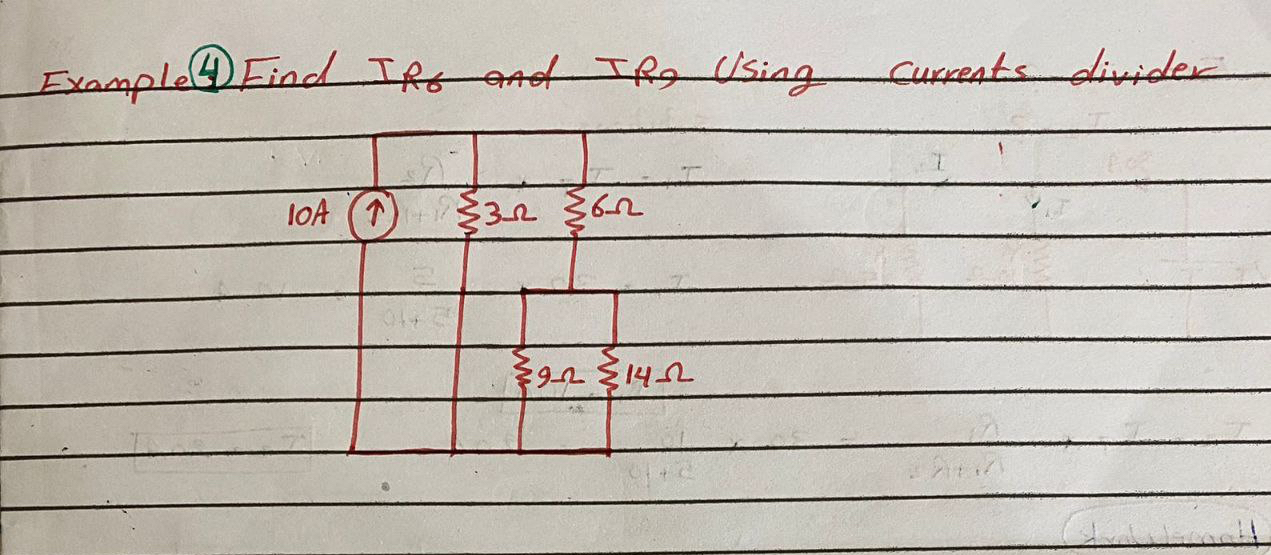 Example ④ Find IR6 and IR9 Using Currents divider
10A 3Ω 6Ω
9Ω 14Ω